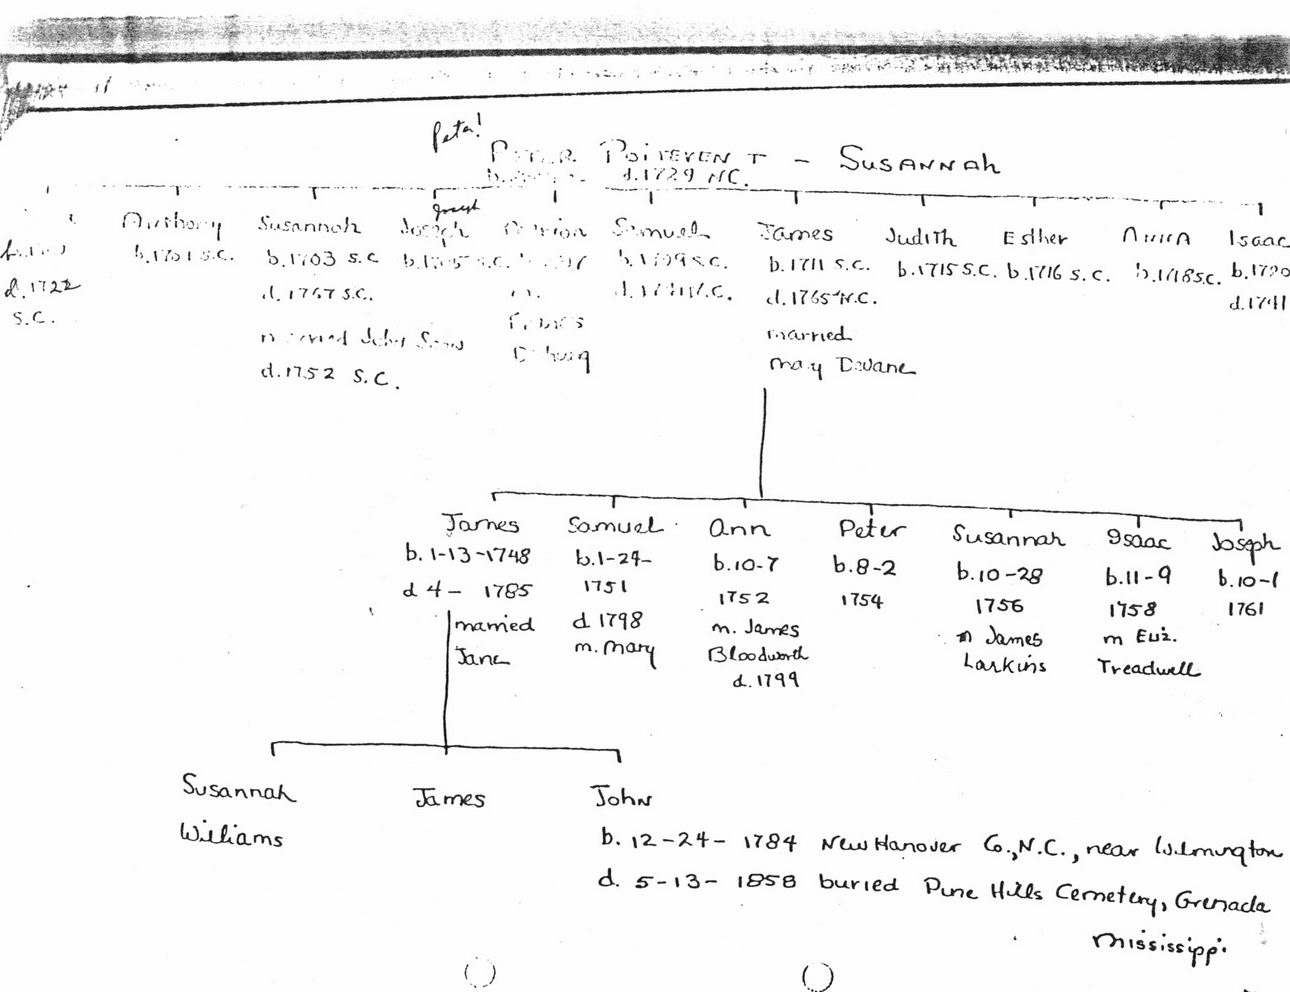 Peter!
Poitevent - Susannah
d. 1729 NC.
Joseph
Anthony Susannah Joseph Samuel James Judith Esther Anna Isaac
b. 1701 S.C. b. 1703 S.C. S.C. b. 1709 S.C. b. 1711 S.C. b. 1715 S.C. b. 1716 S.C. b. 1718 S.C. b. 1720
d. 1722 d. 1767 S.C. d. 1765 N.C. d. 1741
S.C. married John married
d. 1752 S.C. Mary Devane
James Samuel Ann Peter Susannah Isaac Joseph
b. 1-13-1748 b. 1-24- b. 10-7 b. 8-2 b. 10-28 b. 11-9 b. 10-1
d 4- 1785 1751 1752 1754 1756 1758 1761
married d 1798 m. James m James m Eliz.
Jane m. Mary Bloodworth Larkins Treadwell
d. 1799
Susannah James John
Williams
b. 12-24- 1784 New Hanover Co., N.C., near Wilmington
d. 5-13- 1858 buried Pine Hills Cemetery, Grenada
Mississippi.